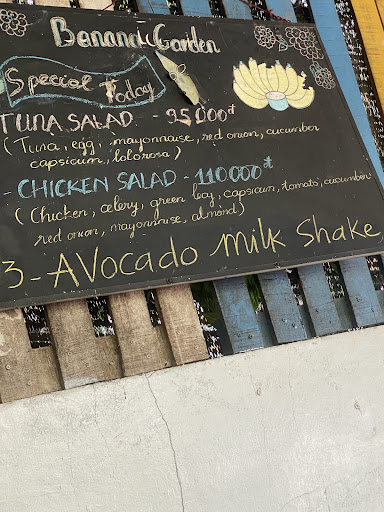 Banana Garden
Special Today
TUNA SALAD - 95,000đ
(Tuna, egg, mayonnaise, red onion, cucumber
capsicum, lolorosa)
- CHICKEN SALAD - 110.000đ
(Chicken, celery, green leaf, capsicum, tomato, cucumber
red onion, mayonnaise, almond)
3 - AVocado milk Shake